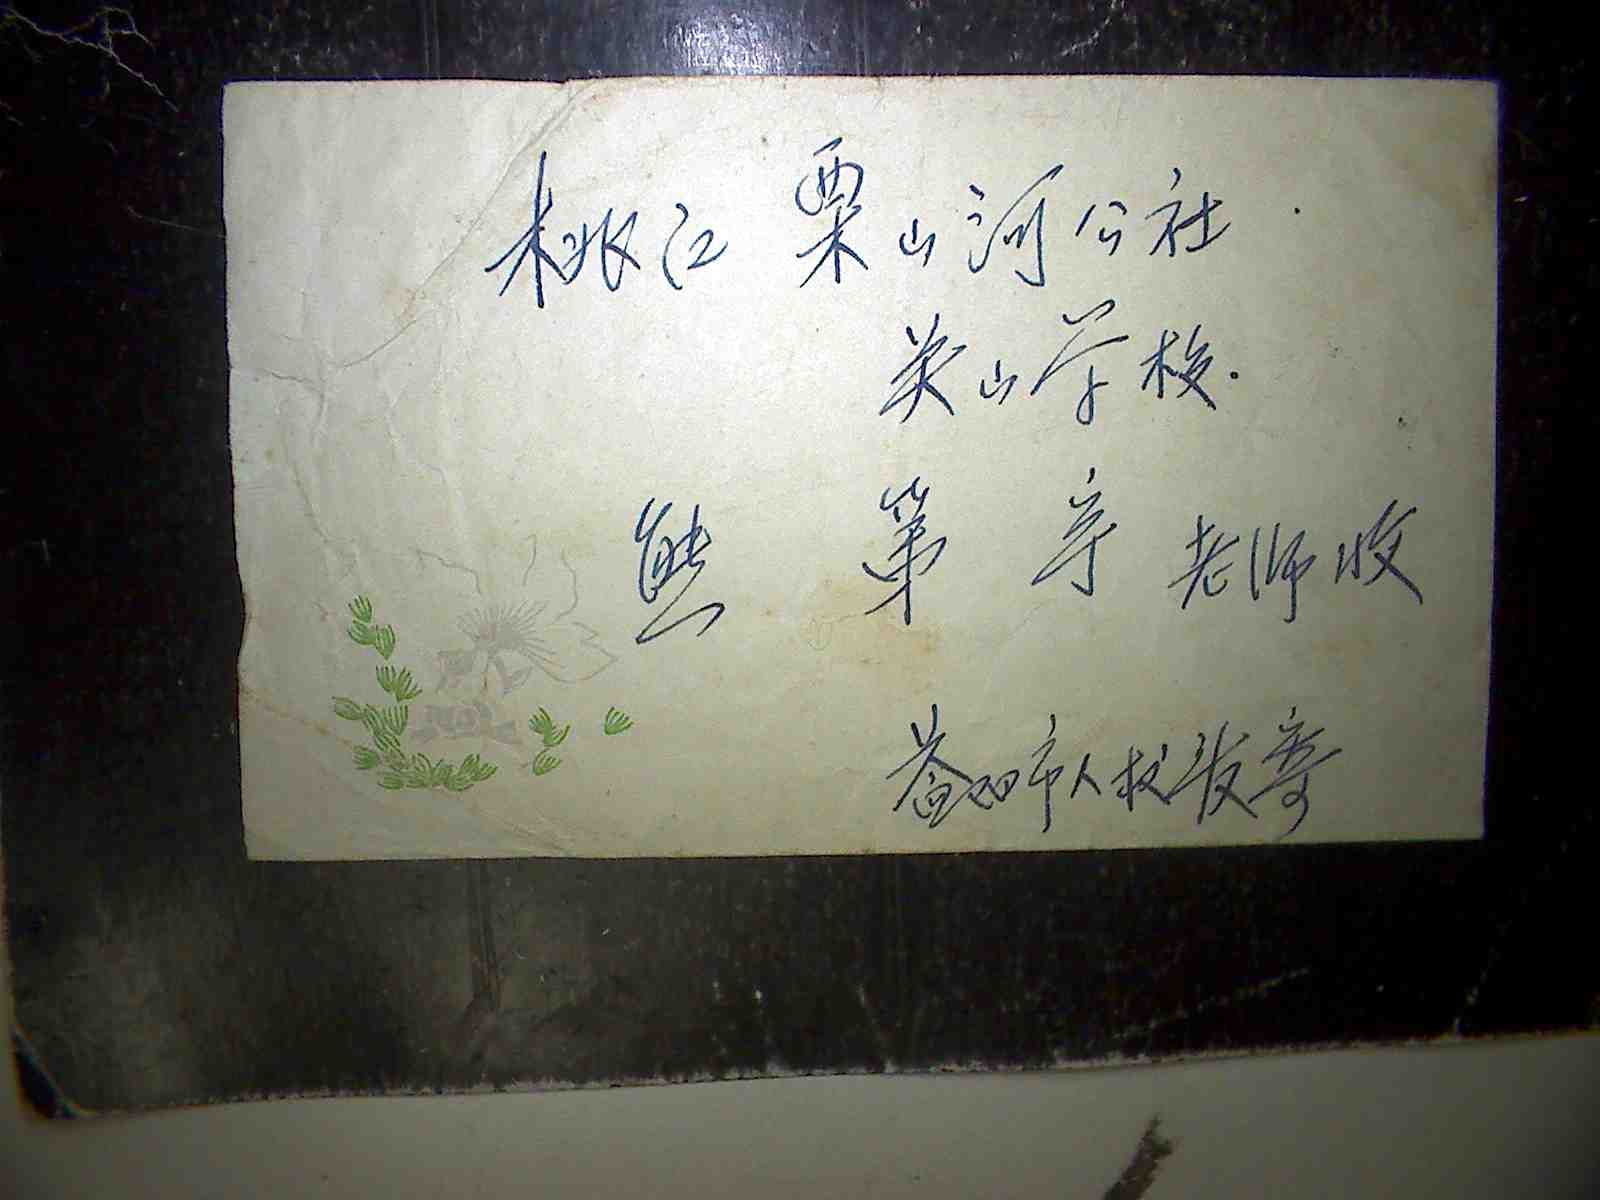 桃江 栗山河公社
关山学校.
熊 第 亭 老师收
益阳市人校张寄